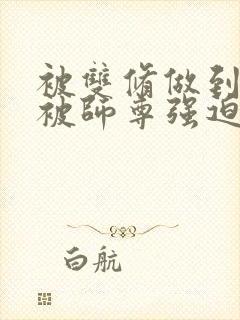 被雙脩做到
被師尊强迫
白航